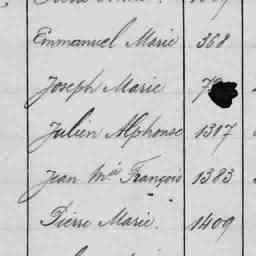 Emmanuel Marie 368
Joseph Marie
Julien Alphonse 1317
Jean Mie François 1383
Pierre Marie. 1409